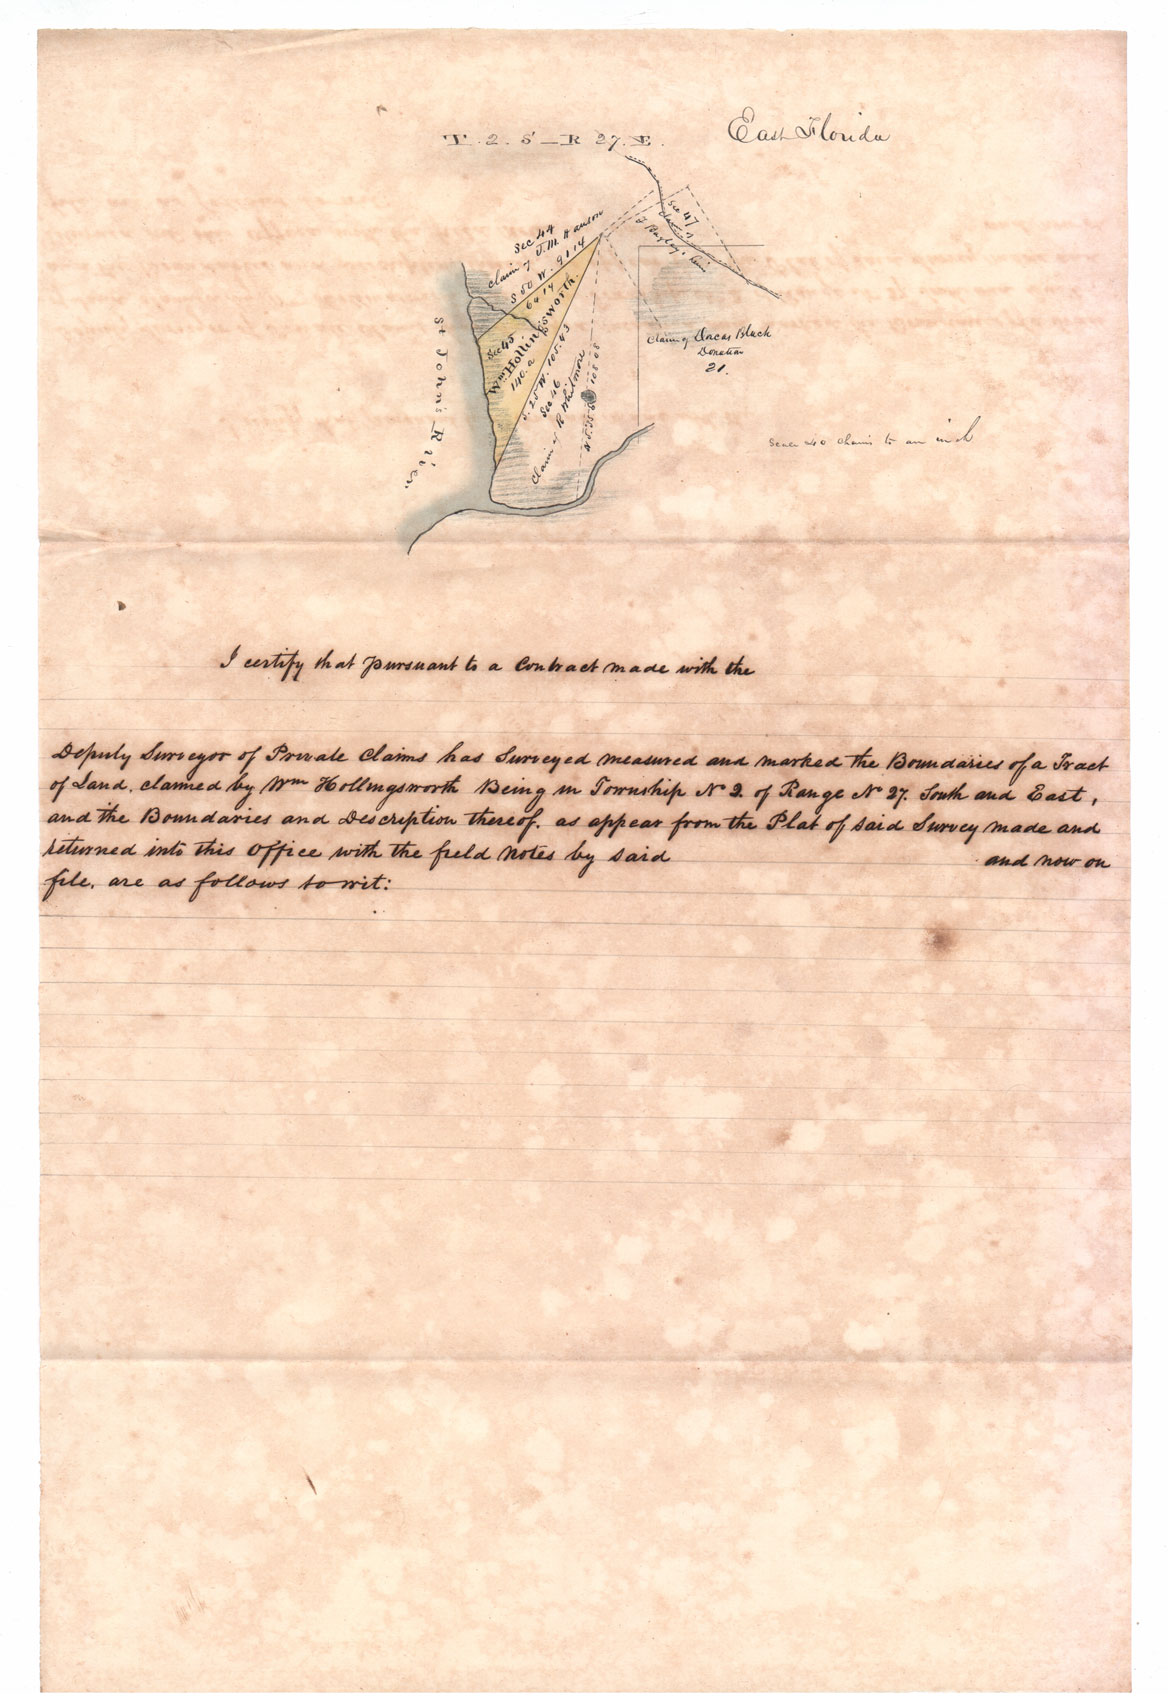 T. 2. S — R 27. E.
East Florida
Sec 44
Claim of J. M. Hanson
S. 50 W. 91 14
64 14
Sec 45.
Wm Hollingsworth.
140. a
S. 25 W. 105.43
Sec 46
Claim of R Whitmore
Sec 47
Claim of
Claim of Uncas Black
Donation
21.
St John's River
Scale 40 Chains to an inch
I certify that pursuant to a Contract made with the
Deputy Surveyor of Private Claims has Surveyed measured and marked the Boundaries of a Tract
of Land, claimed by Wm Hollingsworth Being in Township No 2. of Range No 27. South and East,
and the Boundaries and Description thereof. as appear from the Plat of said Survey made and
returned into this Office with the field Notes by said and now on
file, are as follows to wit: